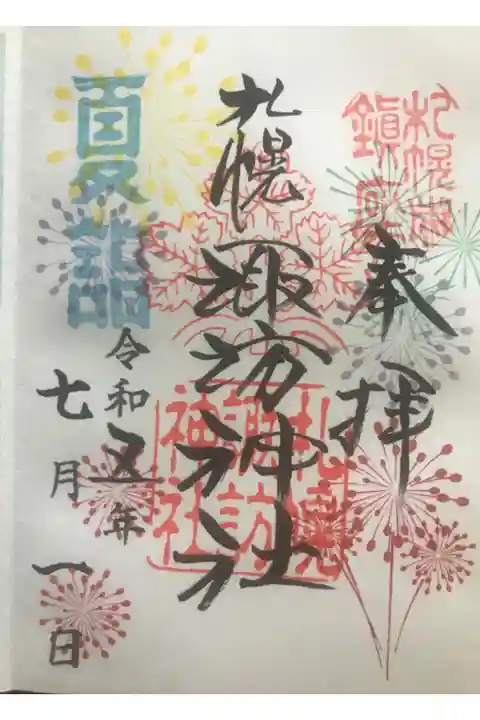 札幌市
鎮座
奉拝
札幌諏訪神社
札幌
諏訪
神社
夏詣
令和五年
七月一日